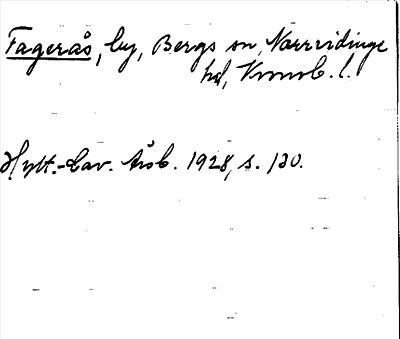 Fagerås, by, Bergs sn, Norrvidinge
hd, Kronob. l.
Hylt.-Cav. Årsb. 1928, s. 130.